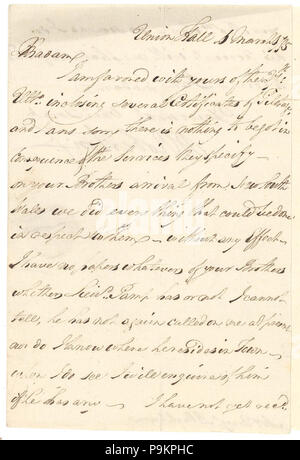 Union Hall 5 March 95
Madam
I am favored with yours of the
Ulto. inclosing several Certificates of
and I am sorry there is nothing to be got in
Consequence of the Services they specify —
on your Brothers arrival from New South
Wales we did every thing that could be done
in respect to them — without any Effect —
I have no papers whatever of your Brothers
whether Lieut. Kemp has or not I cannot
tell, he has not again called on me at
nor do I know where he resides in Town —
when I do see I will enquire of him
if he has any — I have not yet recd.
alamy
Image ID: P9KPHC
www.alamy.com